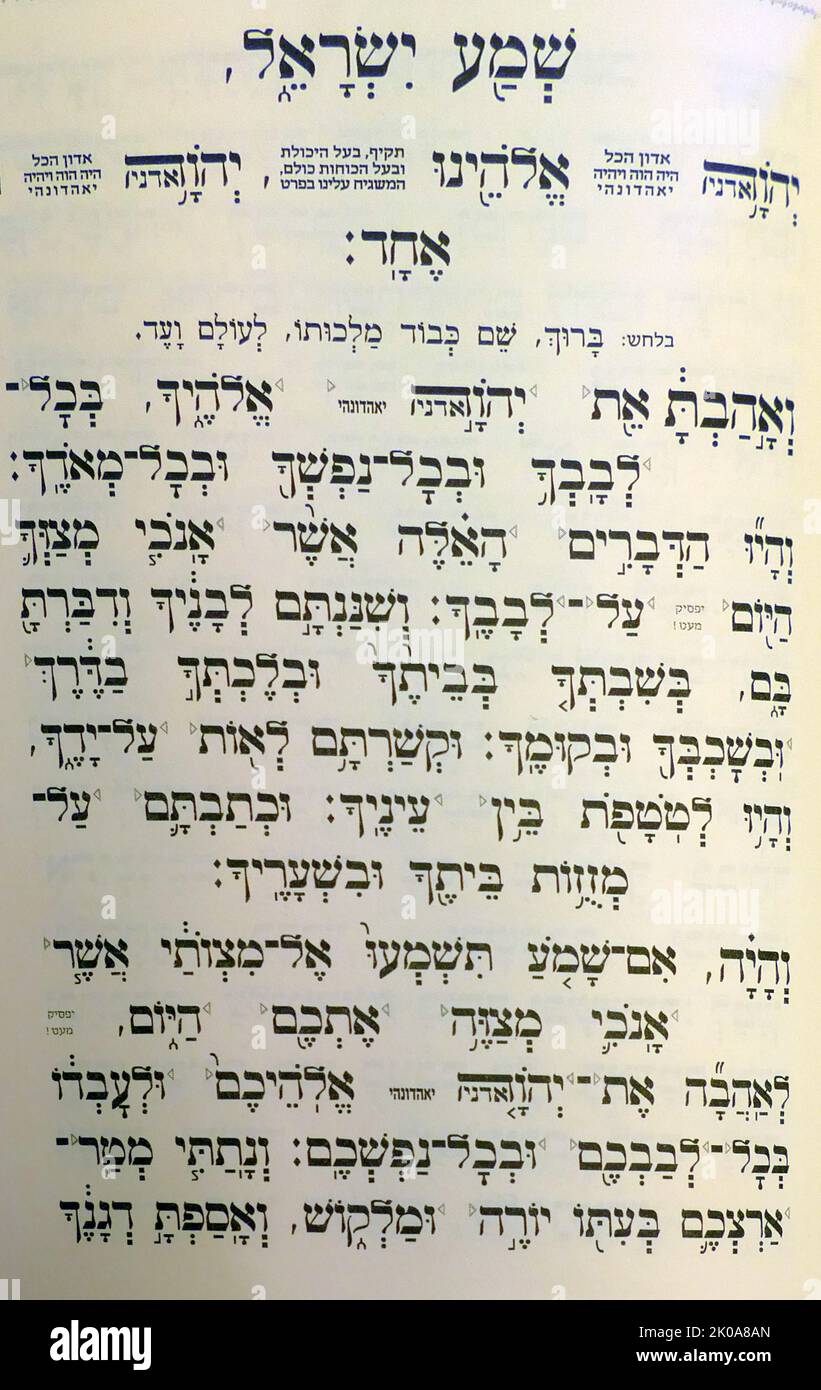 שְׁמַ֖ע יִשְׂרָאֵ֑ל,
יְהֹוָ֥ה אדני אדון הכל היה הוה ויהיה יאהדונהי אֱלֹהֵ֖ינוּ תקיף, בעל היכולת ובעל הכוחות כולם, המשגיח עלינו בפרט, יְהֹוָ֥ה אדני אדון הכל היה הוה ויהיה יאהדונהי
אֶחָֽד:
בלחש: בָּרוּךְ, שֵׁם כְּבוֹד מַלְכוּתוֹ, לְעוֹלָם וָעֶד.
וְאָ֣הַבְתָּ֔ אֵ֖ת יְהֹוָ֣ה אדני יאהדונהי אֱלֹהֶ֑יךָ, בְּכׇל־
לְבָבְךָ֥ וּבְכׇל־נַפְשְׁךָ֖ וּבְכׇל־מְאֹדֶֽךָ:
וְהָי֞וּ הַדְּבָרִ֣ים הָאֵ֗לֶּה אֲשֶׁ֨ר אָֽנֹכִ֧י מְצַוְּךָ֛
הַיּ֖וֹם יפסיק מעט! עַל־לְבָבֶֽךָ: וְשִׁנַּנְתָּ֣ם לְבָנֶ֔יךָ וְדִבַּרְתָּ֖
בָּ֑ם, בְּשִׁבְתְּךָ֤ בְּבֵיתֶ֙ךָ֙ וּבְלֶכְתְּךָ֣ בַדֶּ֔רֶךְ
וּֽבְשָׁכְבְּךָ֖ וּבְקוּמֶֽךָ: וּקְשַׁרְתָּ֥ם לְא֖וֹת עַל־יָדֶ֑ךָ,
וְהָי֥וּ לְטֹטָפֹ֖ת בֵּ֥ין עֵינֶֽיךָ: וּכְתַבְתָּ֛ם עַל־
מְזֻז֥וֹת בֵּיתֶ֖ךָ וּבִשְׁעָרֶֽיךָ:
וְהָיָ֗ה, אִם־שָׁמֹ֤עַ תִּשְׁמְעוּ֙ אֶל־מִצְוֺתַ֔י אֲשֶׁ֧ר
אָֽנֹכִ֛י מְצַוֶּ֥ה אֶתְכֶ֖ם הַיּ֑וֹם, יפסיק מעט!
לְאַֽהֲבָ֞ה אֶת־יְהֹוָ֤ה אדני יאהדונהי אֱלֹֽהֵיכֶם֙ וּלְעׇבְד֔וֹ
בְּכׇל־לְבַבְכֶ֖ם וּבְכׇל־נַפְשְׁכֶֽם: וְנָֽתַתִּ֧י מְטַֽר־
אַרְצְכֶ֛ם בְּעִתּ֖וֹ יוֹרֶ֣ה וּמַלְק֑וֹשׁ, וְאָֽסַפְתָּ֣ דְגָנֶ֔ךָ
alamy
alamy
alamy
alamy
alamy
Image ID: 2K0A8AN
www.alamy.com